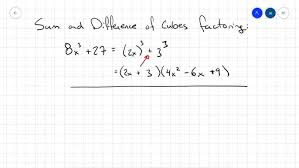 Sum and Difference of Cubes factoring:
8x³ + 27 = (2x)³ + 3³
= (2x + 3)(4x² - 6x + 9)